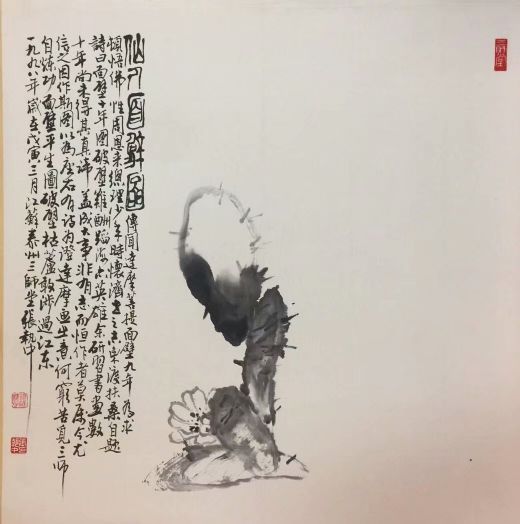 仙人面壁圖 傳聞達摩菩提面壁九年為求
頓悟佛性周恩來總理少年時懷濟世之志東渡扶桑自題
詩曰面壁十年圖破壁難酬蹈海亦英雄余研習書畫數
十年尚未得其真諦蓋成大事非有志而恒作者莫屬今尤
信之因作斯圖以為座右有詩為證達摩畫出意何窮苦覓三師
自煉功面壁平生圖破壁枯蘆敢涉過江东
一九九八年歲在戊寅三月江蘇泰州三師堂張執中